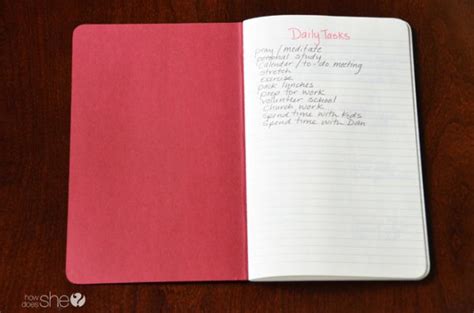 Daily Tasks
pray / meditate
personal study
calendar / to-do meeting
stretch
exercise
pack lunches
prep for work
volunteer school
church work
spend time with kids
spend time with Dan
how does she?